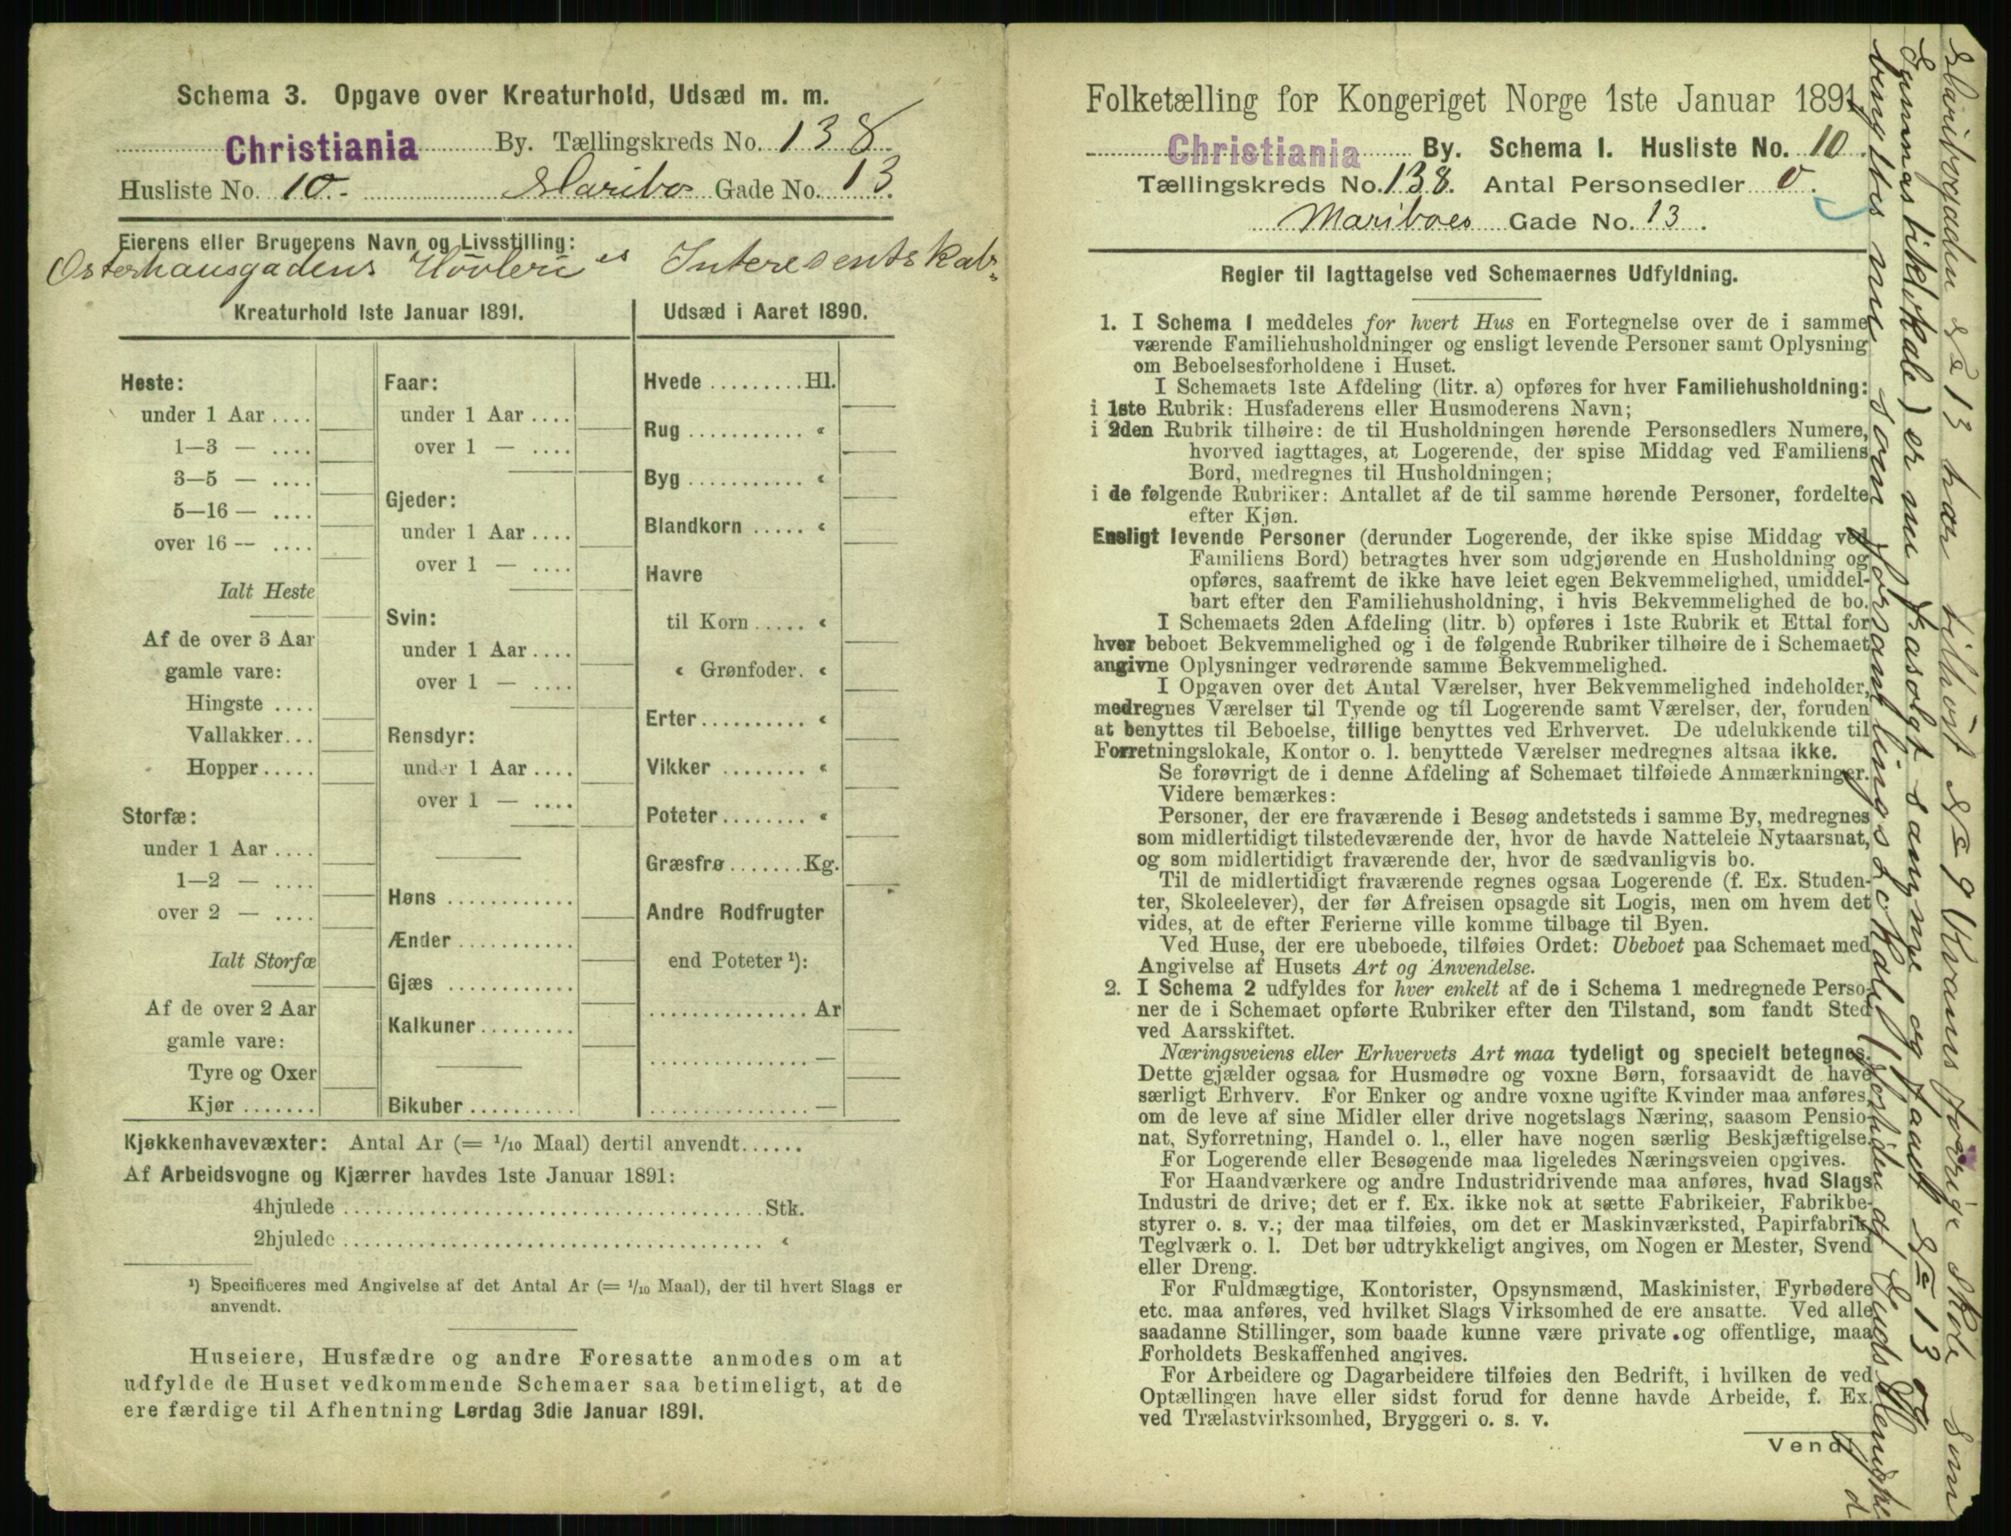 Schema 3. Opgave over Kreaturhold, Udsæd m. m.
Christiania By. Tællingskreds No. 138
Husliste No. 10.- Maribos Gade No. 13.
Eierens eller Brugerens Navn og Livsstilling:
Osterhausgadens Høvleri es Interesentskab
Kreaturhold 1ste Januar 1891.
Heste:
under 1 Aar ....
1—3 — ....
3—5 — ....
5—16 — ....
over 16 — ....
Ialt Heste
Af de over 3 Aar
gamle vare:
Hingste ....
Vallakker...
Hopper.....
Storfæ:
under 1 Aar ....
1—2 — ....
over 2 — ....
Ialt Storfæ
Af de over 2 Aar
gamle vare:
Tyre og Oxer
Kjør .......
Faar:
under 1 Aar ....
over 1 — ....
Gjeder:
under 1 Aar ....
over 1 — ....
Svin:
under 1 Aar ....
over 1 — ....
Rensdyr:
under 1 Aar ....
over 1 — ....
Høns ............
Ænder ...........
Gjæs ............
Kalkuner.........
Bikuber ..........
Udsæd i Aaret 1890.
Hvede .........Hl.
Rug ........... «
Byg ........... «
Blandkorn ..... «
Havre
til Korn ..... «
« Grønfoder. «
Erter.......... «
Vikker ........ «
Poteter........ «
Græsfrø .......Kg.
Andre Rodfrugter
end Poteter ¹):
............... Ar
............... —
............... —
Kjøkkenhavevæxter: Antal Ar (= 1/10 Maal) dertil anvendt......
Af Arbeidsvogne og Kjærrer havdes 1ste Januar 1891:
4hjulede ....................................... Stk.
2hjulede ....................................... «
¹) Specificeres med Angivelse af det Antal Ar (= 1/10 Maal), der til hvert Slags er
anvendt.
Huseiere, Husfædre og andre Foresatte anmodes om at
udfylde de Huset vedkommende Schemaer saa betimeligt, at de
ere færdige til Afhentning Lørdag 3die Januar 1891.
Folketælling for Kongeriget Norge 1ste Januar 1891.
Christiania By. Schema I. Husliste No. 10.
Tællingskreds No. 138. Antal Personsedler 0.
Mariboes Gade No. 13.
Regler til Iagttagelse ved Schemaernes Udfyldning.
1. I Schema 1 meddeles for hvert Hus en Fortegnelse over de i samme
værende Familiehusholdninger og ensligt levende Personer samt Oplysning
om Beboelsesforholdene i Huset.
I Schemaets 1ste Afdeling (litr. a) opføres for hver Familiehusholdning:
i 1ste Rubrik: Husfaderens eller Husmoderens Navn;
i 2den Rubrik tilhøire: de til Husholdningen hørende Personsedlers Numere,
hvorved iagttages, at Logerende, der spise Middag ved Familiens
Bord, medregnes til Husholdningen;
i de følgende Rubriker: Antallet af de til samme hørende Personer, fordelte
efter Kjøn.
Ensligt levende Personer (derunder Logerende, der ikke spise Middag ved
Familiens Bord) betragtes hver som udgjørende en Husholdning og
opføres, saafremt de ikke have leiet egen Bekvemmelighed, umiddel-
bart efter den Familiehusholdning, i hvis Bekvemmelighed de bo.
I Schemaets 2den Afdeling (litr. b) opføres i 1ste Rubrik et Ettal for
hver beboet Bekvemmelighed og i de følgende Rubriker tilhøire de i Schemaet
angivne Oplysninger vedrørende samme Bekvemmelighed.
I Opgaven over det Antal Værelser, hver Bekvemmelighed indeholder,
medregnes Værelser til Tyende og til Logerende samt Værelser, der, foruden
at benyttes til Beboelse, tillige benyttes ved Erhvervet. De udelukkende til
Forretningslokale, Kontor o. l. benyttede Værelser medregnes altsaa ikke.
Se forøvrigt de i denne Afdeling af Schemaet tilføiede Anmærkninger.
Videre bemærkes:
Personer, der ere fraværende i Besøg andetsteds i samme By, medregnes
som midlertidigt tilstedeværende der, hvor de havde Natteleie Nytaarsnat,
og som midlertidigt fraværende der, hvor de sædvanligvis bo.
Til de midlertidigt fraværende regnes ogsaa Logerende (f. Ex. Studen-
ter, Skoleelever), der før Afreisen opsagde sit Logis, men om hvem det
vides, at de efter Ferierne ville komme tilbage til Byen.
Ved Huse, der ere ubeboede, tilføies Ordet: Ubeboet paa Schemaet med
Angivelse af Husets Art og Anvendelse.
2. I Schema 2 udfyldes for hver enkelt af de i Schema 1 medregnede Perso-
ner de i Schemaet opførte Rubriker efter den Tilstand, som fandt Sted
ved Aarsskiftet.
Næringsveiens eller Erhvervets Art maa tydeligt og specielt betegnes.
Dette gjælder ogsaa for Husmødre og voxne Børn, forsaavidt de have
særligt Erhverv. For Enker og andre voxne ugifte Kvinder maa anføres,
om de leve af sine Midler eller drive nogetslags Næring, saasom Pensio-
nat, Syforretning, Handel o. l., eller have nogen særlig Beskjæftigelse.
For Logerende eller Besøgende maa ligeledes Næringsveien opgives.
For Haandværkere og andre Industridrivende maa anføres, hvad Slags
Industri de drive; det er f. Ex. ikke nok at sætte Fabrikeier, Fabrikbe-
styrer o. s. v.; der maa tilføies, om det er Maskinværksted, Papirfabrik,
Teglværk o. l. Det bør udtrykkeligt angives, om Nogen er Mester, Svend
eller Dreng.
For Fuldmægtige, Kontorister, Opsynsmænd, Maskinister, Fyrbødere
etc. maa anføres, ved hvilket Slags Virksomhed de ere ansatte. Ved alle
saadanne Stillinger, som baade kunne være private og offentlige, maa
Forholdets Beskaffenhed angives.
For Arbeidere og Dagarbeidere tilføies den Bedrift, i hvilken de ved
Optællingen have eller sidst forud for denne havde Arbeide, f. Ex.
ved Trælastvirksomhed, Bryggeri o. s. v.
Vend
Maribogaden No 13 har tilhørt No 9 Kvams forrige Skole som
Gymnastiklokale) er nu frasolgt samme og faaet No 13 og
benyttes nu som forsamlingslokale